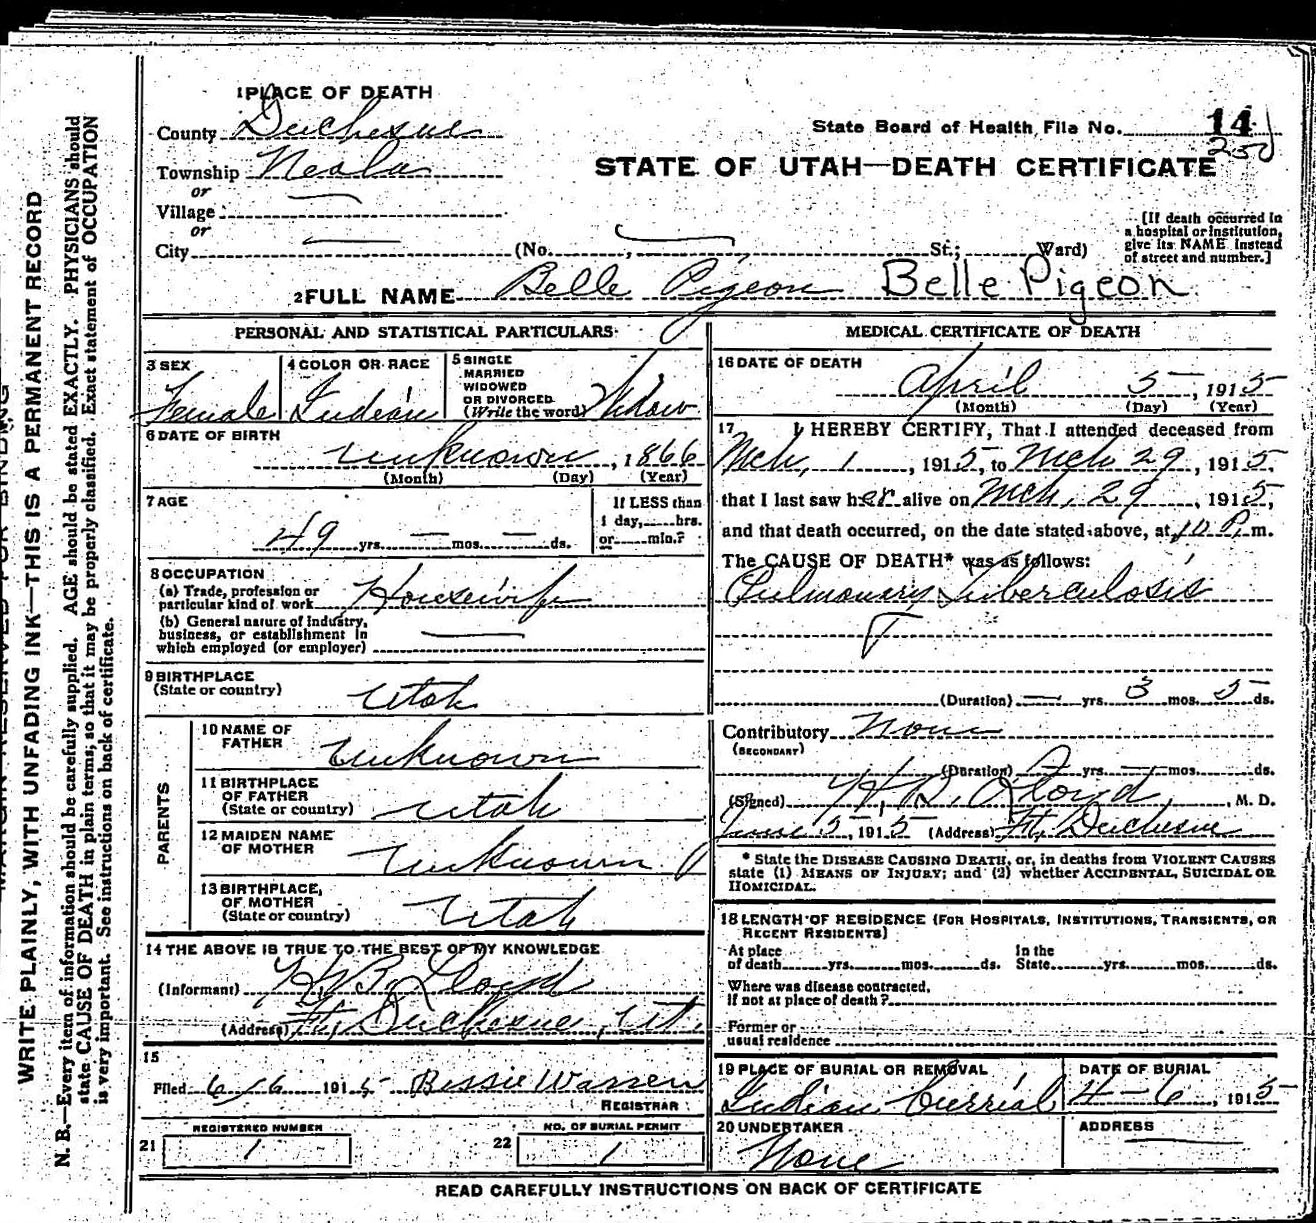 1 PLACE OF DEATH
County Duchesne
Township Neola
or
Village
or
City (No. St.; Ward)
State Board of Health File No. 14
250
STATE OF UTAH—DEATH CERTIFICATE
[If death occurred in
a hospital or institution,
give its NAME instead
of street and number.]
2 FULL NAME Belle Pigeon Belle Pigeon
PERSONAL AND STATISTICAL PARTICULARS
3 SEX
Female
4 COLOR OR RACE
Indian
5 SINGLE
MARRIED
WIDOWED
OR DIVORCED
(Write the word) Widow
6 DATE OF BIRTH
unknown, 1866
(Month) (Day) (Year)
7 AGE
49 yrs. — mos. — ds.
If LESS than
1 day, hrs.
or min.?
8 OCCUPATION
(a) Trade, profession or
particular kind of work Housewife
(b) General nature of industry,
business, or establishment in
which employed (or employer)
9 BIRTHPLACE
(State or country) Utah
PARENTS
10 NAME OF
FATHER unknown
11 BIRTHPLACE
OF FATHER
(State or country) Utah
12 MAIDEN NAME
OF MOTHER Unknown
13 BIRTHPLACE,
OF MOTHER
(State or country) Utah
14 THE ABOVE IS TRUE TO THE BEST OF MY KNOWLEDGE
(Informant) H. B. Lloyd
(Address) Ft. Duchesne, Ut.
15
Filed 6/6 1915 Bessie Warren
REGISTRAR
21 REGISTERED NUMBER
1
22 NO. OF BURIAL PERMIT
1
MEDICAL CERTIFICATE OF DEATH
16 DATE OF DEATH
April 5, 1915
(Month) (Day) (Year)
17 I HEREBY CERTIFY, That I attended deceased from
Mch, 1, 1915, to Mch 29, 1915,
that I last saw her alive on Mch, 29, 1915,
and that death occurred, on the date stated above, at 10 P. m.
The CAUSE OF DEATH* was as follows:
Pulmonary Tuberculosis
(Duration) — yrs. 3 mos. 5 ds.
Contributory None
(SECONDARY)
(Duration) yrs. — mos. ds.
(Signed) H. B. Lloyd, M. D.
June 5, 1915 (Address) Ft. Duchesne
* State the DISEASE CAUSING DEATH, or, in deaths from VIOLENT CAUSES
state (1) MEANS OF INJURY; and (2) whether ACCIDENTAL, SUICIDAL OR
HOMICIDAL.
18 LENGTH OF RESIDENCE (FOR HOSPITALS, INSTITUTIONS, TRANSIENTS, OR
RECENT RESIDENTS)
At place
of death yrs. mos. ds.
In the
State yrs. mos. ds.
Where was disease contracted,
if not at place of death?
Former or
usual residence
19 PLACE OF BURIAL OR REMOVAL
Indian burrial
DATE OF BURIAL
4-6, 1915
20 UNDERTAKER
None
ADDRESS
READ CAREFULLY INSTRUCTIONS ON BACK OF CERTIFICATE
WRITE PLAINLY, WITH UNFADING INK—THIS IS A PERMANENT RECORD
N. B.—Every item of information should be carefully supplied. AGE should be stated EXACTLY. PHYSICIANS should
state CAUSE OF DEATH in plain terms, so that it may be properly classified. Exact statement of OCCUPATION
is very important. See instructions on back of certificate.